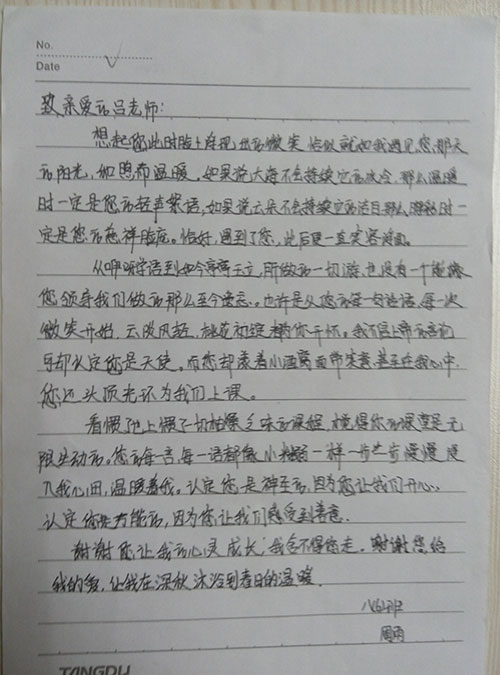 No.
Date
致亲爱的吕老师：
想起您此时脸上浮现出的微笑恰似就如我遇见您那天
的阳光，如照布温暖。如果说大海不会持续它的冰冷，那么温暖
时一定是您的轻声絮语，如果说云朵不会持续它的洁白那么时一
定是您的慈祥脸庞。恰好，遇到了您，此后便一直笑容满面。
从咿呀学语到如今亭亭玉立，所做的一切游也没有一个能像
您领导我们做的那么至今难忘。也许是从您的每一句话语、每一次
微笑开始，云淡风轻，桃花初绽我不信上帝的
却认定您是天使。而您却表着小酒窝面带笑意，甚至在我心中，
您还头顶光环为我们上课。
看惯了上惯了一切枯燥乏味的课程，觉得你的课堂是无
限生动的。您的每言，每一语都像小一样一步步慢慢浸
入我心田，温暖着我。认定您是神圣的，因为您让我们开心，
认定你是万能的，因为您让我们感受到善意。
谢谢您让我的心灵成长；我舍不得您走。谢谢您给
我的爱，让我在深秋沐浴到春日的温暖。
八(6)班
周雨
TANGDU